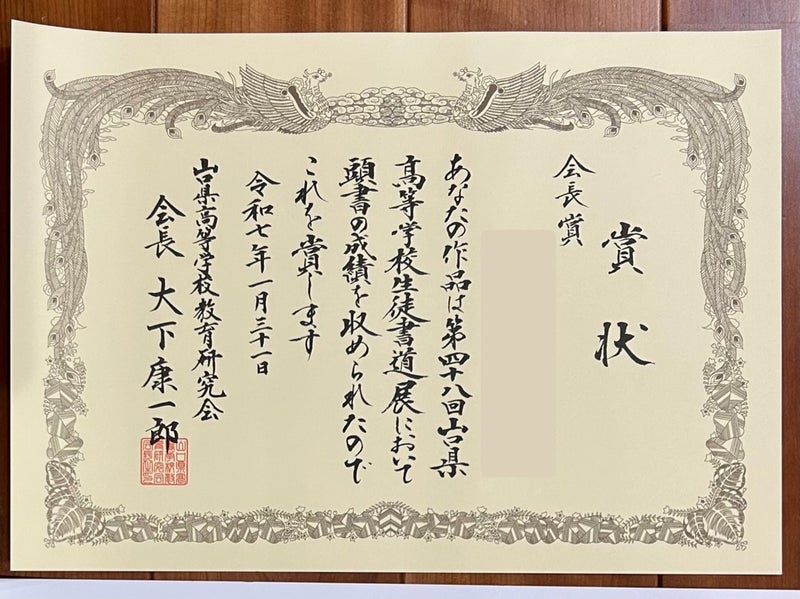 賞状
会長賞
あなたの作品は第四十八回山口県
高等学校生徒書道展において
頭書の成績を収められたので
これを賞します
令和七年一月三十一日
山口県高等学校教育研究会
会長 大下康一郎